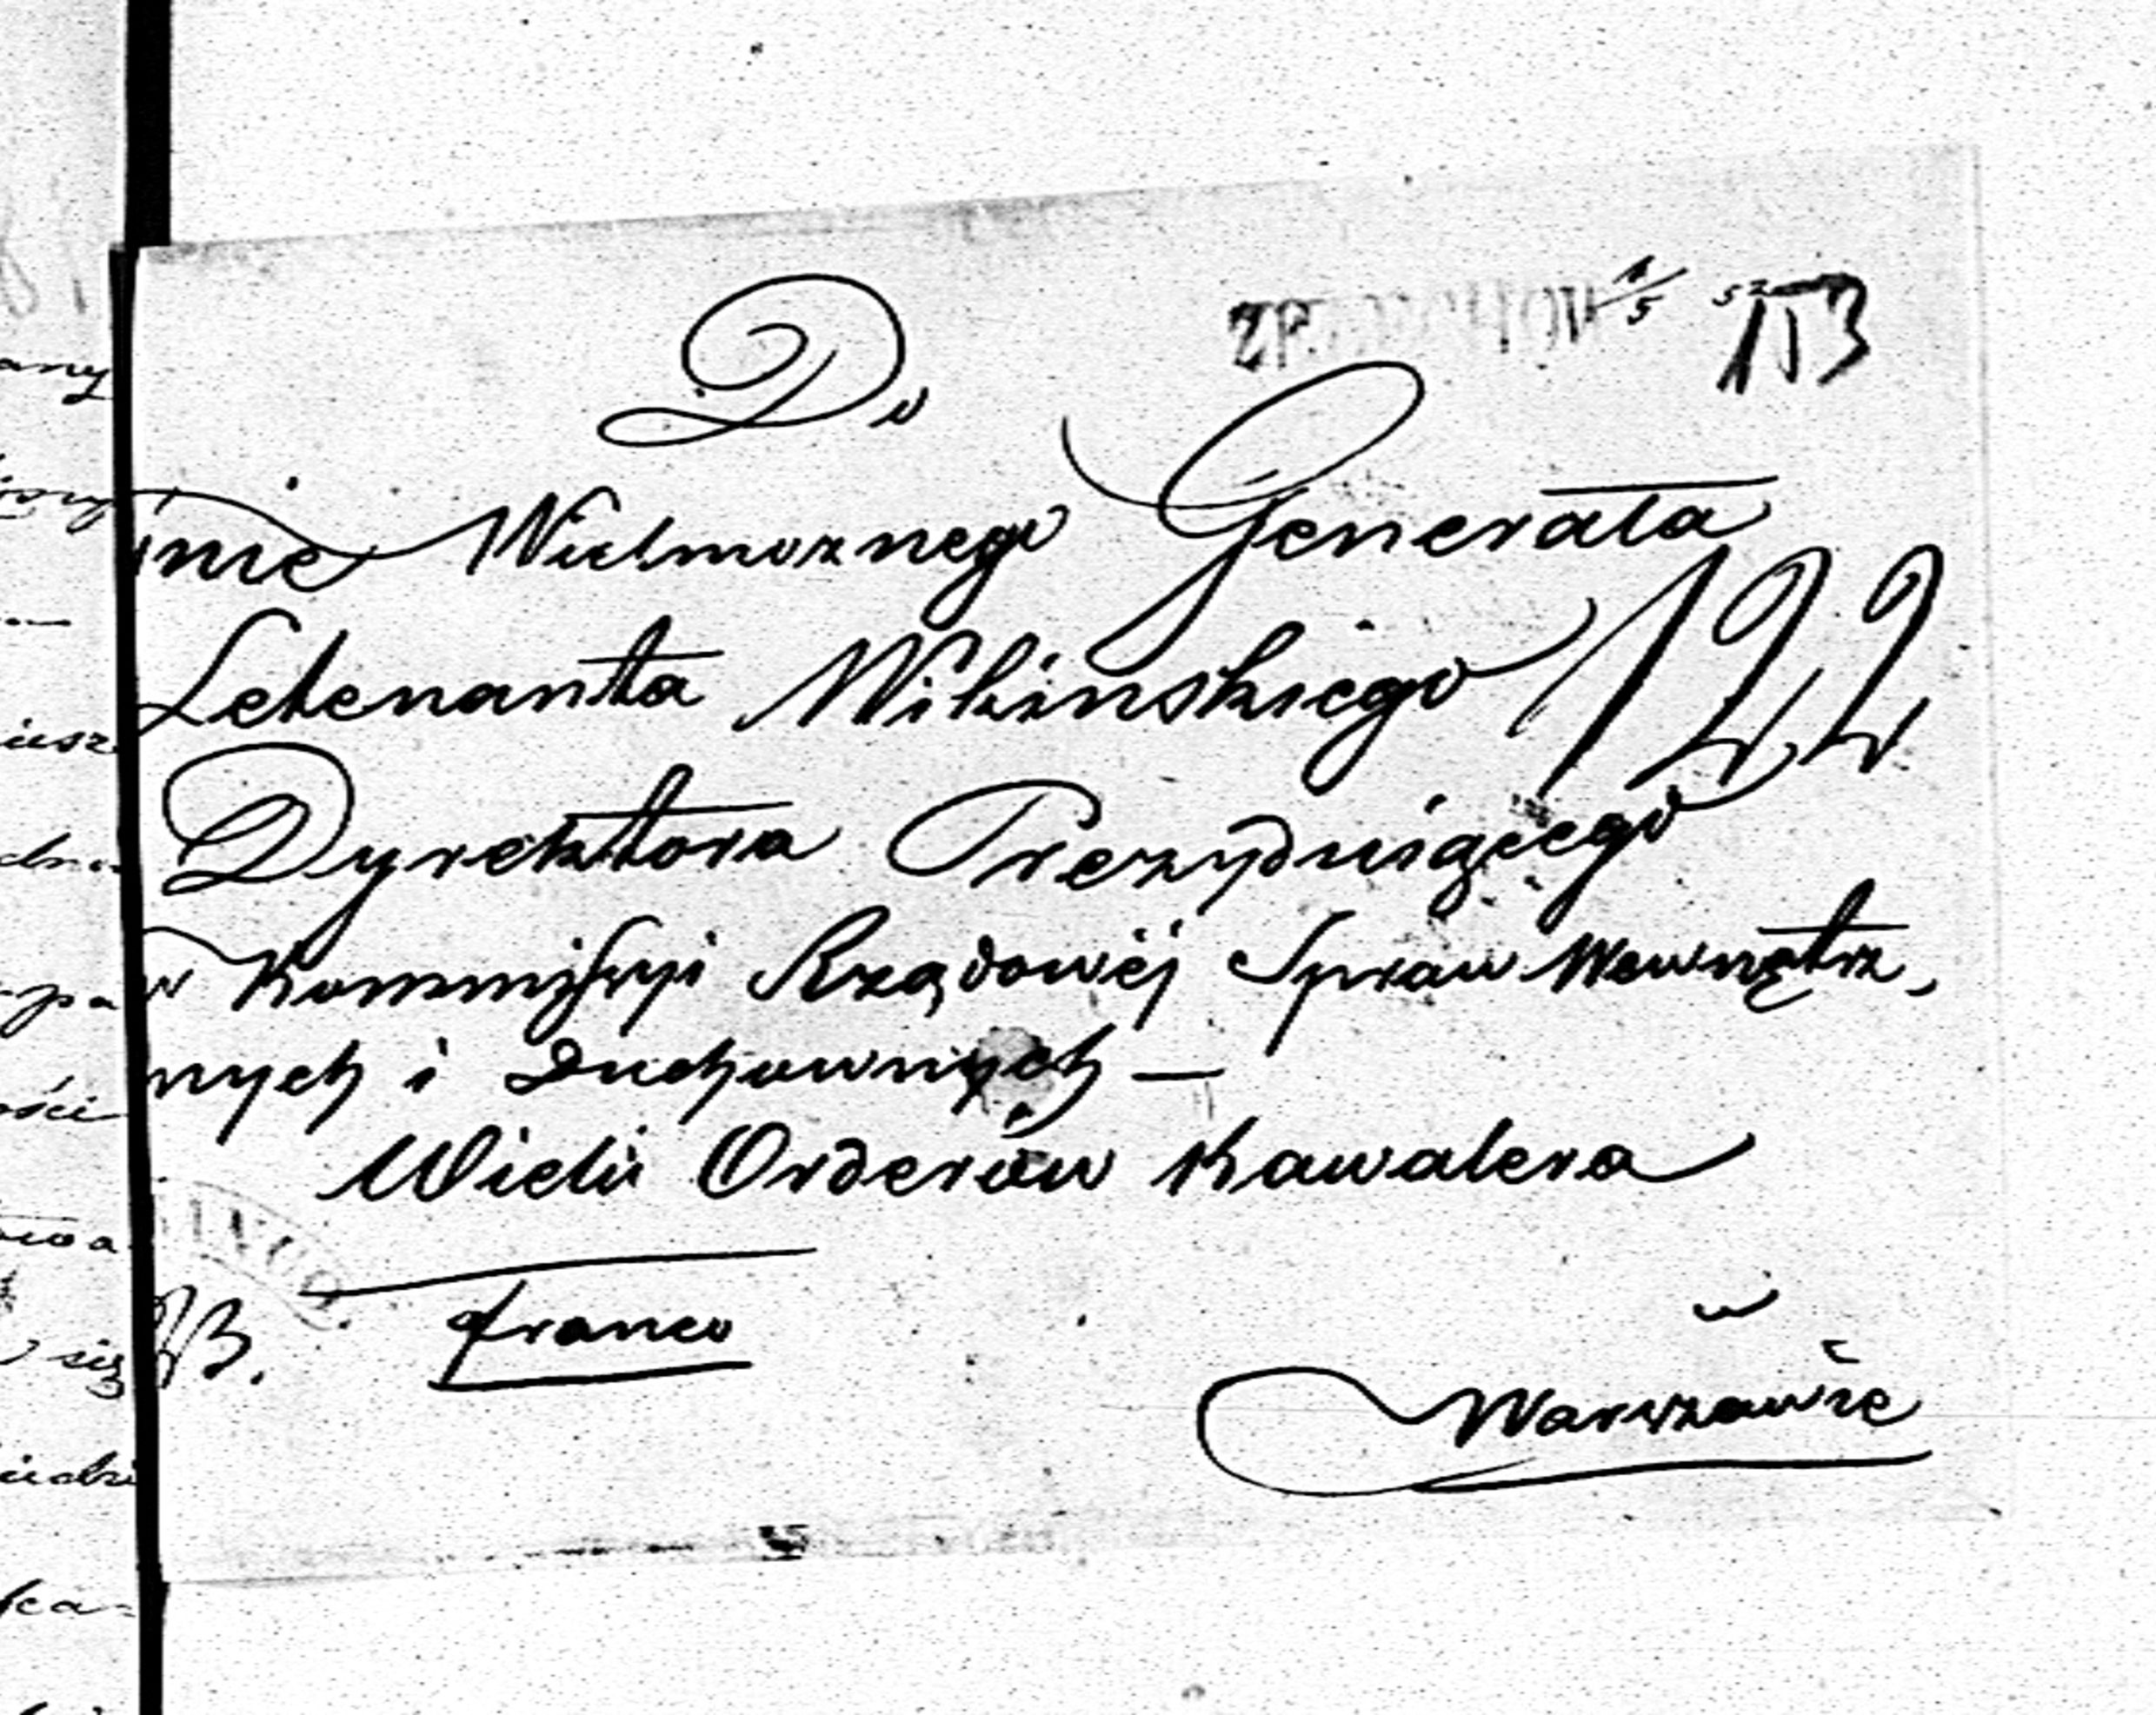 Do
153
nie Wielmoznego Generała
Letenanta Wikinskiego 122
Dyrektora Prezyduiącego
w Kommissyi Rządowéj Spraw Wewnętrz,
nych i Duchownych —
Wielu Orderów Kawalera
franco
w
Warszawie